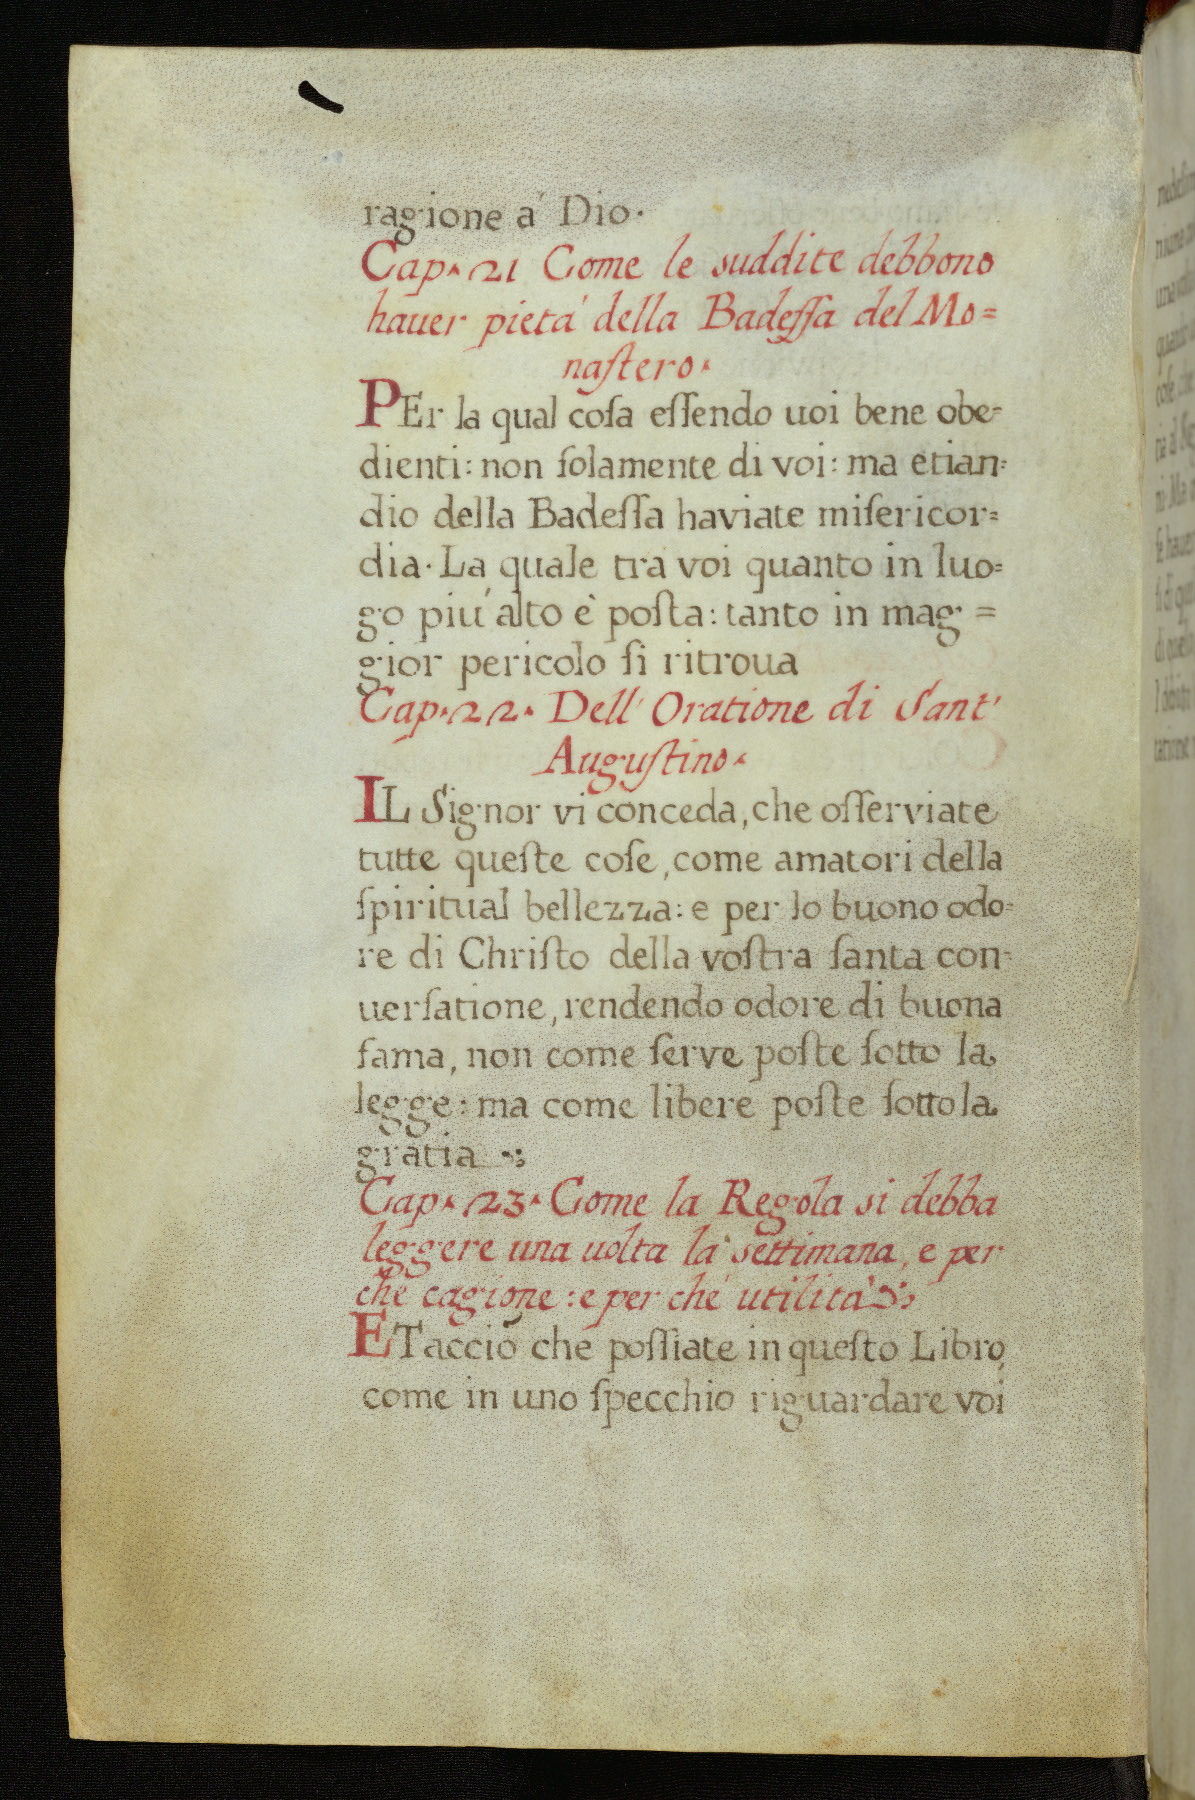 ragione a' Dio·
Cap· 21 Come le suddite debbono
hauer pietá della Badeſſa del Mo=
naſtero·
PEr la qual coſa eſſendo uoi bene obe=
dienti: non ſolamente di voi: ma etian=
dio della Badeſſa haviate miſericor=
dia· La quale tra voi quanto in luo=
go piu' alto è poſta: tanto in mag=
gior pericolo ſi ritroua
Cap·22· Dell' Oratione di Sant'
Auguſtino·
IL Signor vi conceda, che oſſerviate
tutte queſte coſe, come amatori della
ſpiritual bellezza: e per lo buono odo=
re di Chriſto della voſtra ſanta con=
uerſatione, rendendo odore di buona
fama, non come ſerve poſte ſotto la
legge: ma come libere poſte ſotto la
gratia
Cap· 23· Come la Regola si debba
leggere una uolta la settimana, e per
che cagione: e per ché utilitá
ET acciò che poſſiate in queſto Libro
come in uno ſpecchio riguardare voi